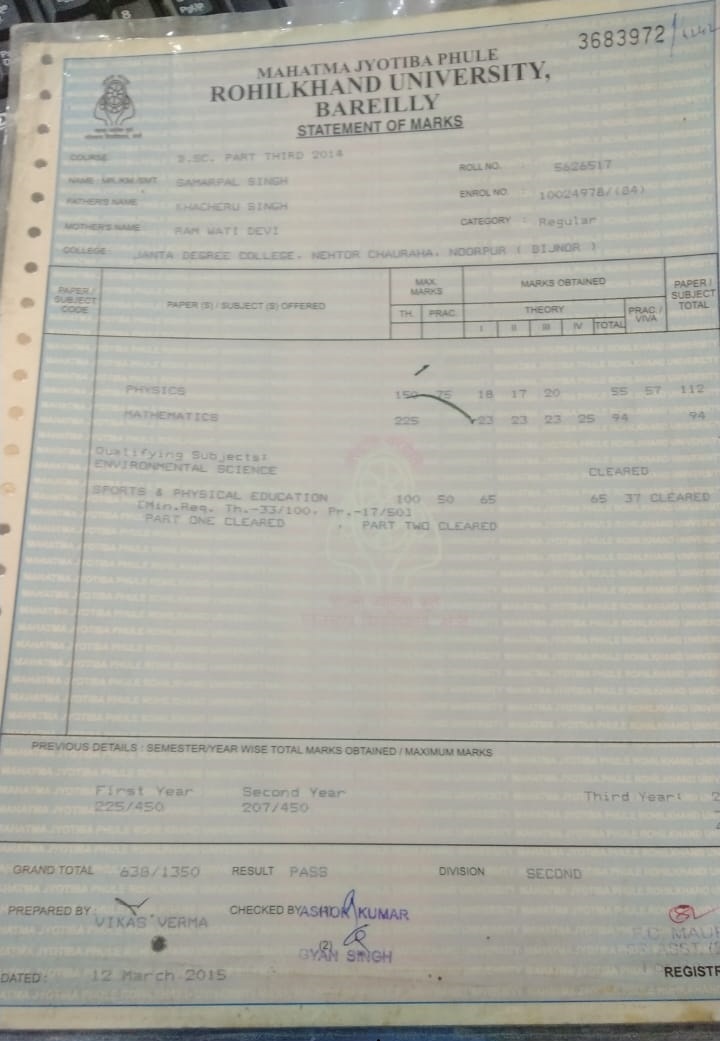 3683972
MAHATMA JYOTIBA PHULE
ROHILKHAND UNIVERSITY,
BAREILLY
STATEMENT OF MARKS
COURSE B.SC. PART THIRD 2014
ROLL NO. : 5626517
NAME : MR./KM./SMT. SAMARPAL SINGH
ENROL NO. : 10024978/(84)
FATHER'S NAME KHACHERU SINGH
CATEGORY : Regular
MOTHER'S NAME RAM WATI DEVI
COLLEGE : JANTA DEGREE COLLEGE, NEHTOR CHAURAHA, NOORPUR ( BIJNOR )
PAPER / SUBJECT CODE PAPER (S) / SUBJECT (S) OFFERED MAX. MARKS MARKS OBTAINED PAPER / SUBJECT TOTAL
TH. PRAC. THEORY PRAC. / VIVA
I II III IV TOTAL
PHYSICS 150 75 18 17 20 55 57 112
MATHEMATICS 225 23 23 23 25 94 94
Qualifying Subjects:
ENVIRONMENTAL SCIENCE CLEARED
SPORTS & PHYSICAL EDUCATION 100 50 65 65 37 CLEARED
[Min.Req. Th.-33/100, Pr.-17/50]
PART ONE CLEARED , PART TWO CLEARED
PREVIOUS DETAILS : SEMESTER/YEAR WISE TOTAL MARKS OBTAINED / MAXIMUM MARKS
First Year Second Year Third Year: 2
225/450 207/450
GRAND TOTAL 638/1350 RESULT PASS DIVISION SECOND
PREPARED BY : VIKAS VERMA CHECKED BY ASHOK KUMAR
(2)
GYAN SINGH
F.C. MAU
REGISTR
DATED : 12 March 2015